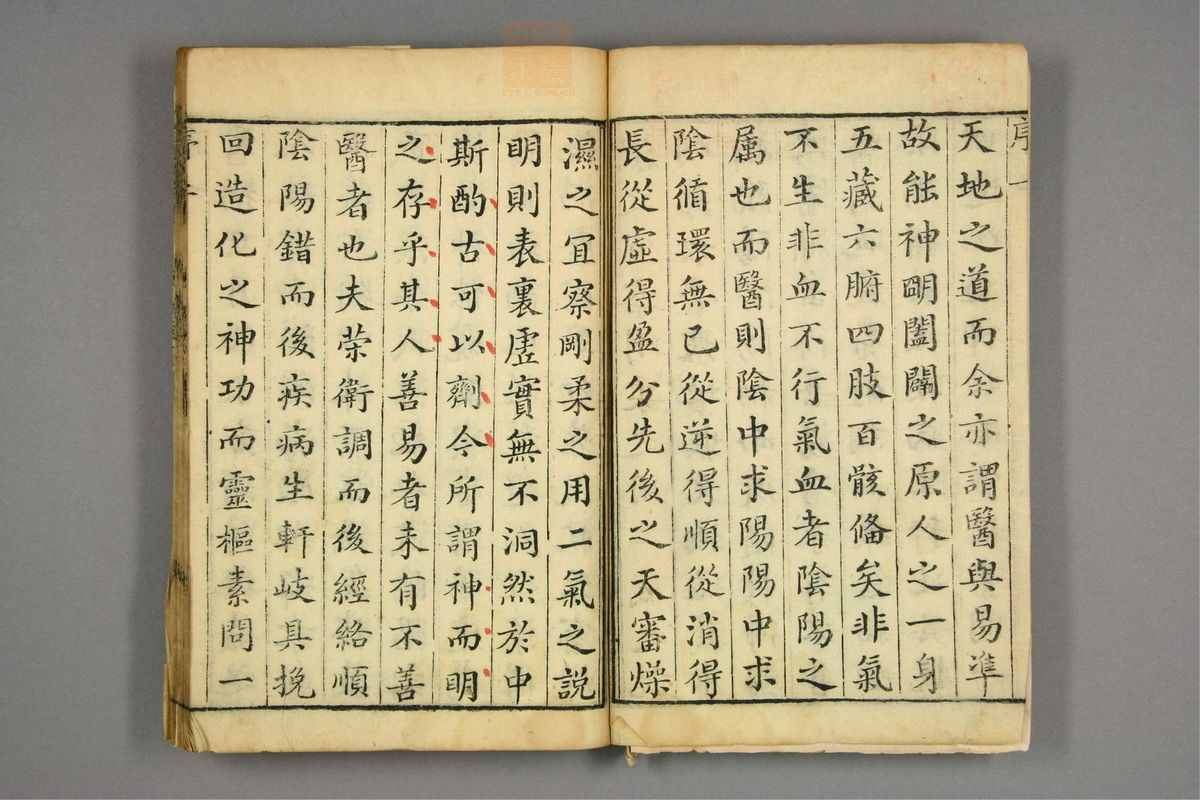 序 一
天地之道而余亦謂醫與易準
故能神明闔闢之原人之一身
五藏六腑四肢百骸備矣非氣
不生非血不行氣血者陰陽之
属也而醫則陰中求陽陽中求
陰循環無已從逆得順從消得
長從虛得盈分先後之天審燥
濕之冝察剛柔之用二氣之説
明則表裏虛實無不洞然於中
斯酌古可以劑今所謂神而明
之存乎其人善易者未有不善
醫者也夫荣衛調而後經絡順
陰陽錯而後疾病生軒岐具挽
回造化之神功而靈樞素問一
序